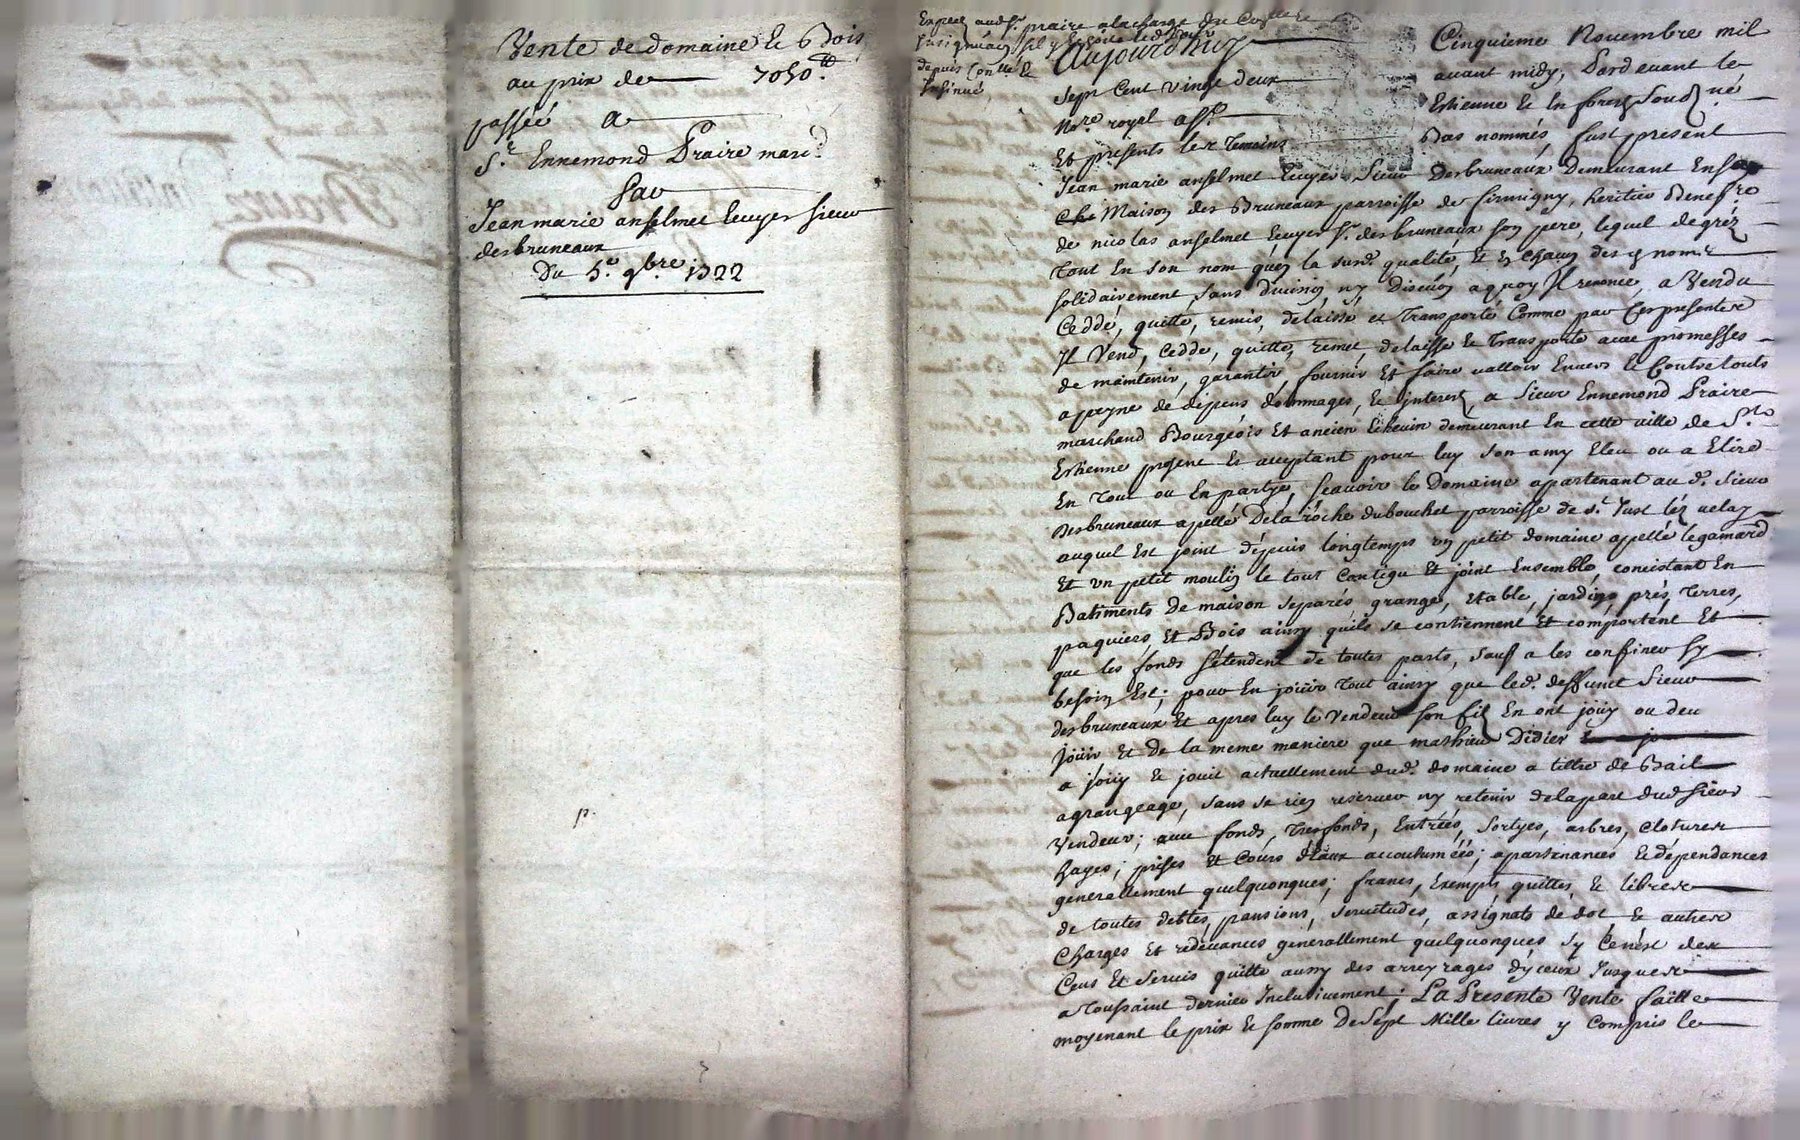 Vente de domaine & Bois
au prix de 7050 tt
passée a
Sr. Ennemond Praire march.d
Par
Jean marie anselmet Ecuyer sieur
desbruneaux
Du 5.e 9bre. 1722
Exped. aud sr. praire a la charge du
depuis Con.lle &
Insinué
Aujourdhuy Cinquieme Novembre mil
Sept Cent vingt deux avant midy, Pardevant le
No.re royal Estienne & en forest Soub.né
Et presents les Temoins Bas nommés, fust present
Jean marie anselmet Ecuyer Sieur Desbruneaux Demeurant En sa
Maison des Bruneaux parroisse de firmigny, heritier Benef.re
de nicolas anselmet Ecuyer Sr. desbruneaux son pere, lequel de gréz
Tout En son nom quen la susd. qualité, et
solidairement sans division ny Discution aquoy Il renonce, a Vendu
Ceddé, quitté, remis, delaissé et Transporté Comme par Ces presentes
Il Vend, Cedde, quitte, remet, delaisse & Transporte avec promesses
de maintenir, garantir, fournir Et faire valloir Envers & Contre touts
a peyne de dépens dommages, & interest, a Sieur Ennemond Praire
marchand Bourgeois Et ancien Echevin demeurant En cette ville de St.
Estienne present & acceptant pour luy son amy Eleu ou a Elire
En Tout ou En partye, Sçauoir le Domaine apartenant au d. Sieur
Desbruneaux apellé De la roche dubouchet parroisse de St. Just léz velay
auquel Est joint dépuis longtemps un petit domaine apellé legamard
Et un petit moulin le tout Contigu Et joint Ensemble, concistant En
Batiments de maison separés, grange, Etable, jardins, prés, Terres,
paquiers Et Bois ainsy quils se contiennent Et comportent Et
que les fonds s'étendent de toutes parts, Sauf a les confiner sy
besoin Est; pour En jouir Tout ainsy que led. deffunct Sieur
desbruneaux Et apres luy le Vendeur son fils En ont jouy ou deu
jouir Et de la meme maniere que mathieu Didier
a jouy & jouit actuellement dud. domaine a tiltre de Bail
agrangeage, sans se rien reserver ny retenir de la part dud Sieur
Vendeur; avec fonds, Tresfonds, Entrées, Sortyes, arbres, clotures
hayes, prises Et Cours d'Eaux accoutumées; apartenances & dépendances
generallement quelquonques; francs, Exempts, quittes, & libres
de toutes debtes, pansions, servitudes, assignats de dot & autres
Charges Et rédevances generallement quelquonques sy Ce n'est des
Cens Et Servis quitte aussy des arreyrages d'yceux Jusques
a Toussaint dernier Inclusivement; La Presente Vente faitte
moyenant le prix & somme De Sept Mille livres y Compris le